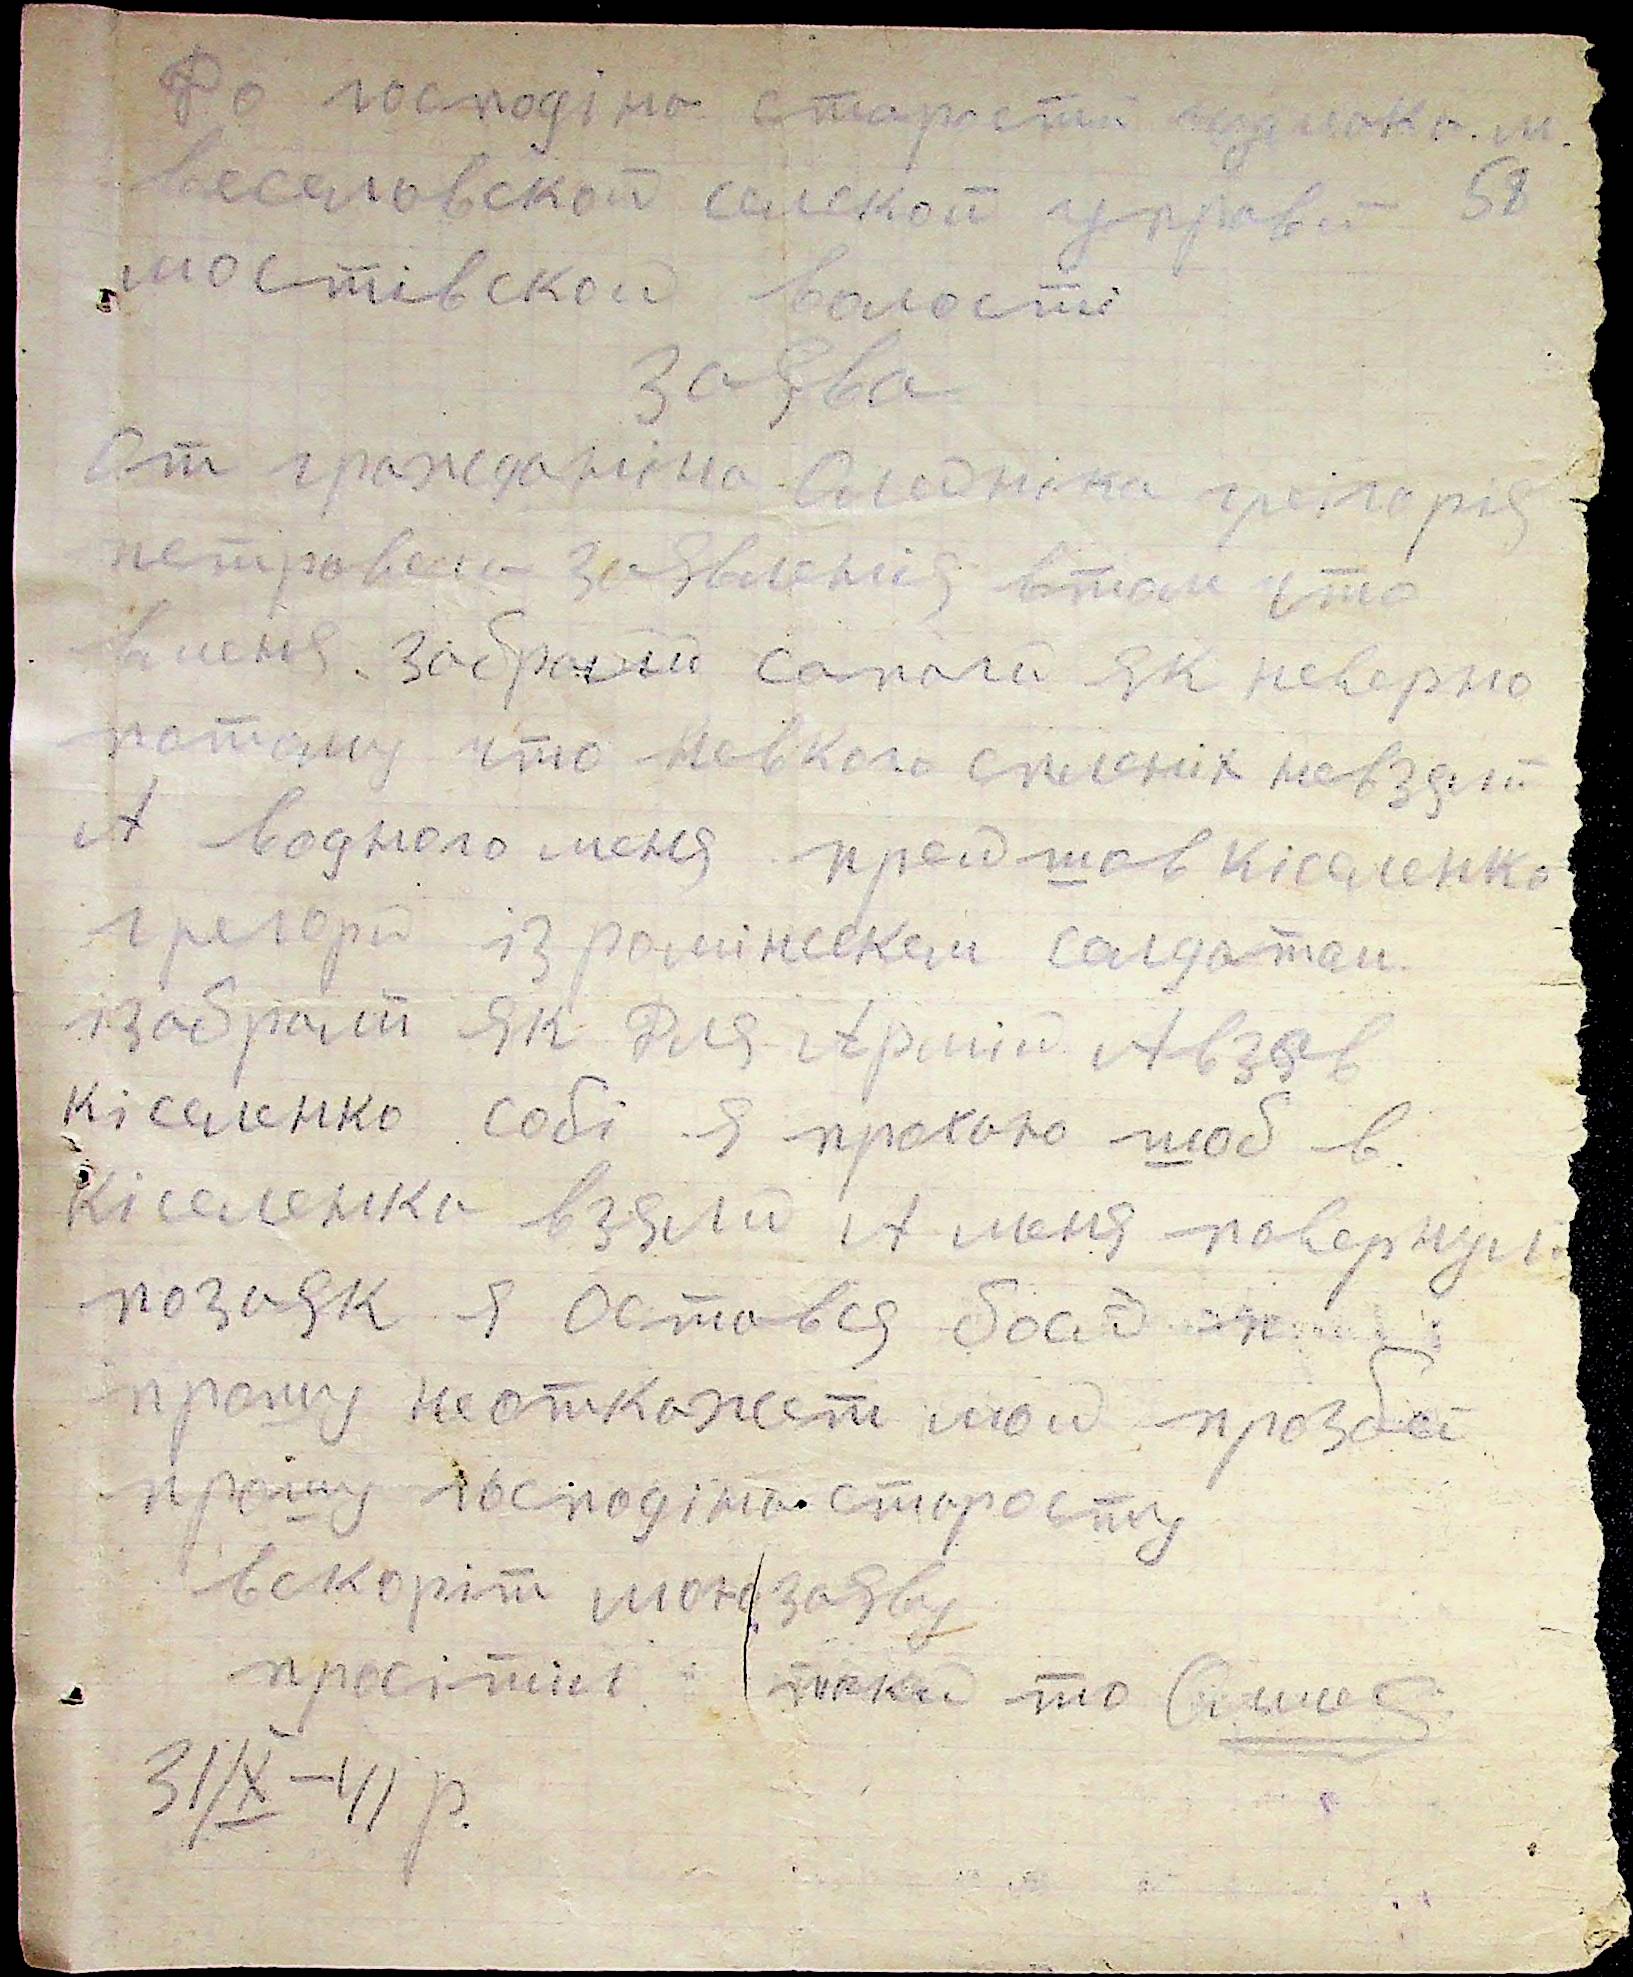 До господіна старости
веселовской селской управи 58
мостівской волости
Заява
От гражданіна Олейніка грігорія
петровеча заявленія втом что
вменя забрали сапоги як неверно
потому что невкого сменіх невзяли
А водного меня прейшов Кіселенко
грегорй із роминскем салдатом
ізабрали як Для Армій А взяв
Кіселенко собі я прохаю шоб в
Кіселенка взяли А меня повернули
позаяк я Остався босий
прошу неоткажет моей прозби
прошу господіна старосту
вскоріт мою заяву
просітіл то
31/X-41 р.